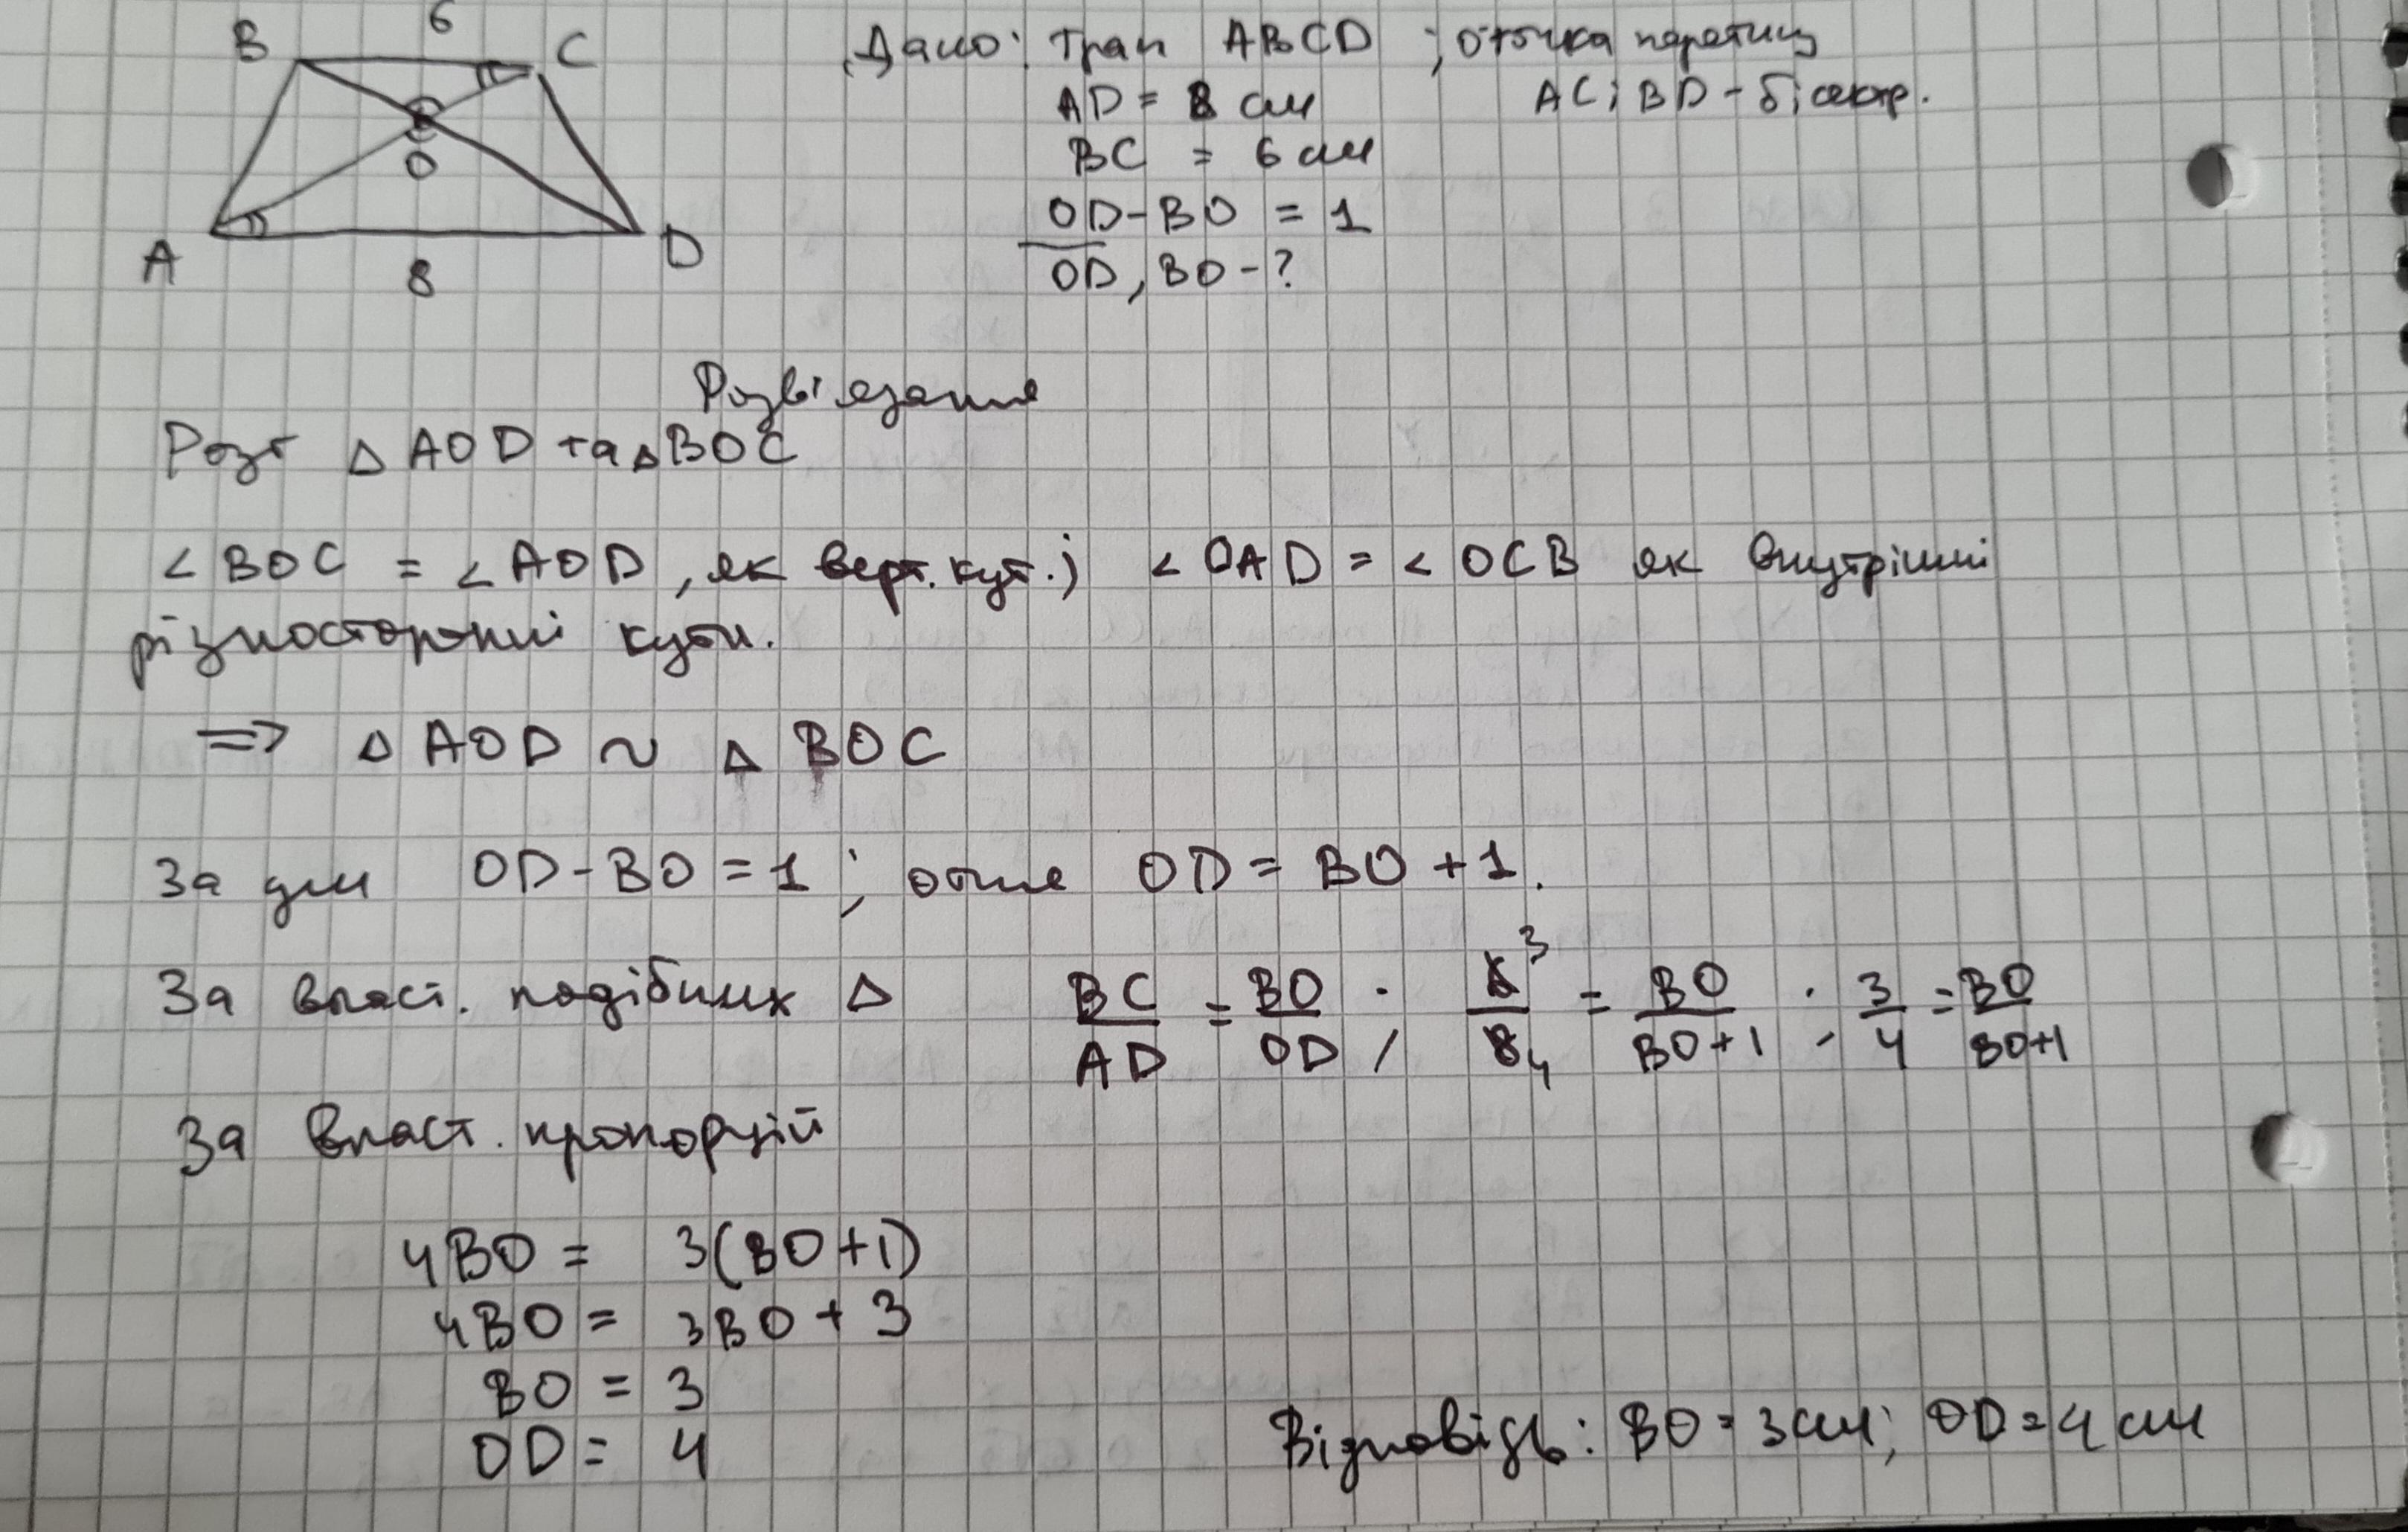 6
B C
O
A D
8
Дано: Трап ABCD ; О точка перетину
AD = 8 см AC і BD - бісектр.
BC = 6 см
OD - BO = 1
OD, BO - ?
Розв'язання
Розг △ AOD та △ BOC
∠ BOC = ∠ AOD, як верт. кут.; ∠ OAD = ∠ OCB як внутрішні
різносторонні кути.
=> △ AOD ~ △ BOC
За ум OD - BO = 1; отже OD = BO + 1.
За власт. подібних △ BC/AD = BO/OD ; 6³/8₄ = BO/BO+1 ; 3/4 = BO/BO+1
За власт. пропорцій
4BO = 3(BO+1)
4BO = 3BO + 3
BO = 3
OD = 4
Відповідь: BO = 3 см; OD = 4 см